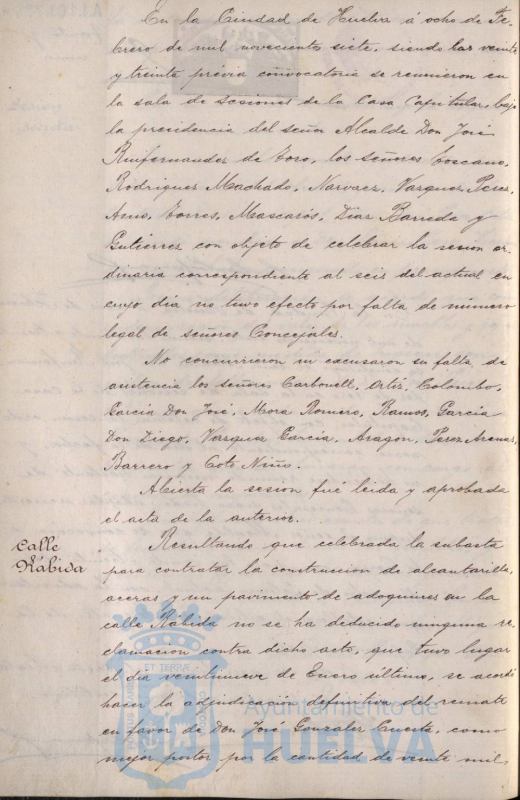 En la Ciudad de Huelva á ocho de Fe-
brero de mil novecientos siete, siendo las veinte
y treinta previa convocatoria se reunieron en
la sala de sesiones de la Casa Capitular, bajo
la presidencia del señor Alcalde Don José
Ruifernandez de Toro, los señores Toscano,
Rodriguez Machado, Narvaez, Vazquez Perez,
Torres, Mascarós, Diaz Barreda y
Gutierrez con objeto de celebrar la sesion or-
dinaria correspondiente al seis del actual en
cuyo dia no tuvo efecto por falta de número
legal de señores Concejales.
No concurrieron ni excusaron su falta de
asistencia los señores Carbonell, Ortiz, Colombo,
Garcia Don José, Mora Romero, Ramos, Garcia
Don Diego, Vazquez Garcia, Aragon, Perez Arenas,
Barrero y Coto Niño.
Abierta la sesion fué leida y aprobada
el acta de la anterior.
Calle
Rábida
Resultando que celebrada la subasta
para contratar la construccion de alcantarilla,
aceras y un pavimento de adoquines en la
calle Rábida no se ha deducido ninguna re-
clamacion contra dicho acto, que tuvo lugar
el dia veintinueve de Enero último, se acordó
hacer la adjudicación definitiva del remate
en favor de Don José Gonzalez Cuesta, como
mejor postor por la cantidad de veinte mil
Ayuntamiento de
HUELVA